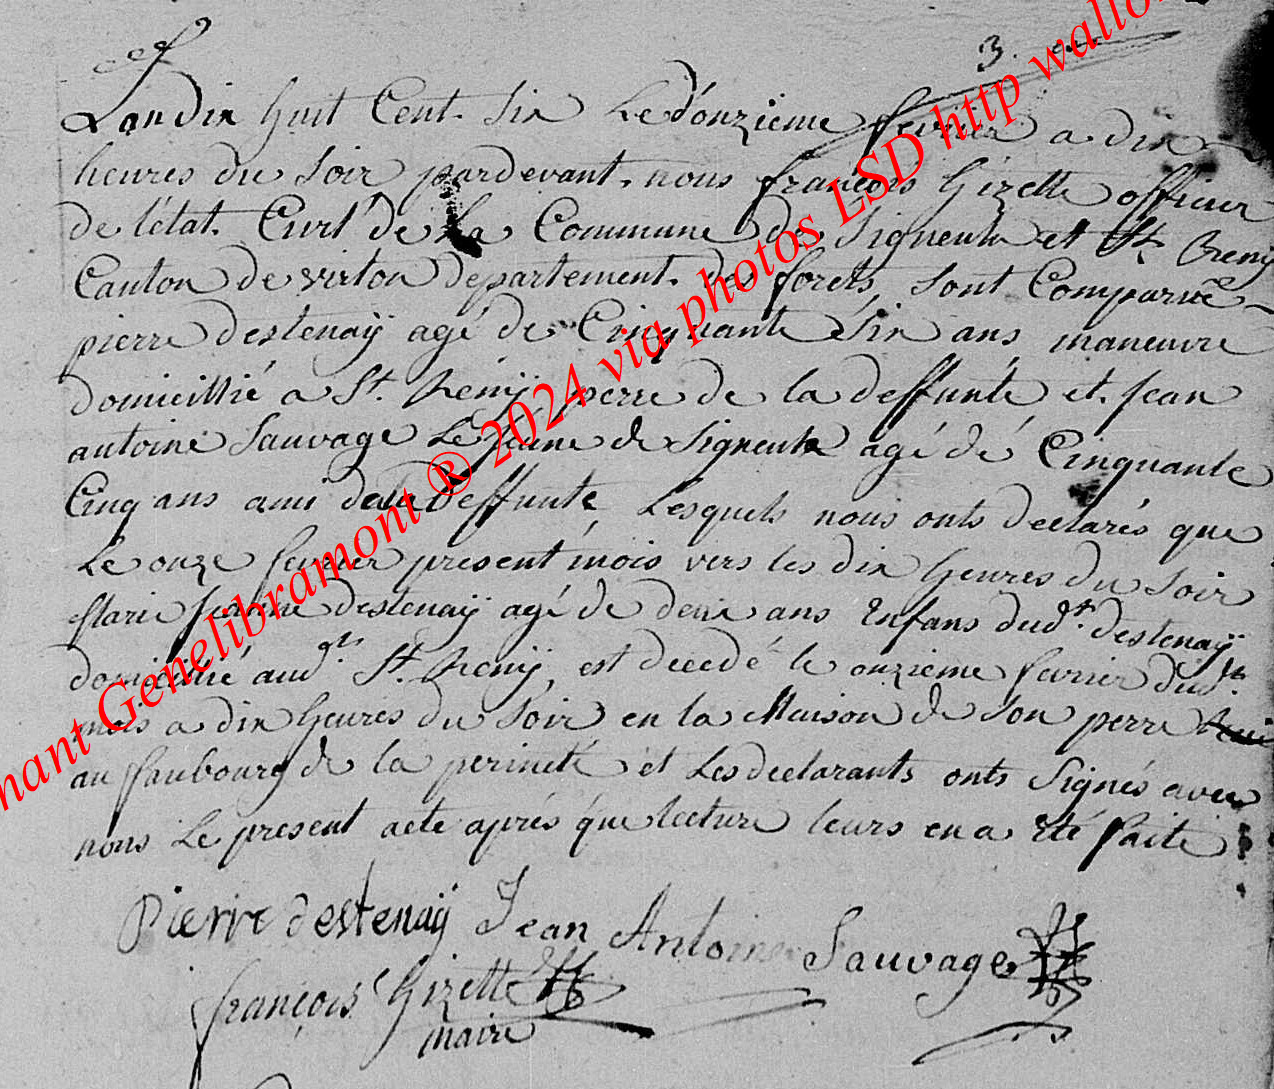 3.
L'an dix huit Cent Six Le d'onzieme fevrier a dix
heures du Soir pardevant nous françois Gizette officier
de l'état Civil de La Commune de Signeulx et St. Remÿ
Canton de virton departement des forets Sont Comparue
pierre destenaÿ agé de Cinquante Six ans maneuvre
domicillié a St. Remÿ perre de la deffunte et Jean
antoine Sauvage Le Jeune de Signeulx agé dé Cinquante
Cinq ans ami dela deffunte Lesquels nous onts declarés que
Le onze fevrier present mois vers les dix heures du Soir
Marie Jeanne destenaÿ agé de deux ans Enfans dudt. destenaÿ
domicillié audt. St. Remÿ est decedé le onzieme fevrier dudt.
mois a dix heures du Soir en la Maison de Son perre
au faubourg de la et Les declarants onts Signés avec
nous Le present acte aprés que lecture leurs en a Eté faite
Pierre destenaÿ Jean Antoine Sauvage
françois Gizette
maire
nant Genelibramont ® 2024 via photos LSD http wallo